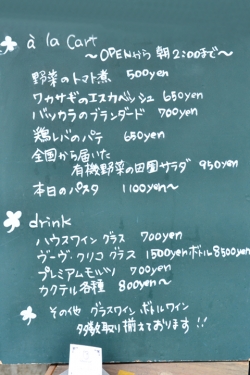 à la Cart
～OPENから 朝2:00まで～
野菜のトマト煮 500yen
ワカサギのエスカベッシュ 650yen
バッカラのブランダード 700yen
鶏レバのパテ 650yen
全国から届いた
有機野菜の田園サラダ 950yen
本日のパスタ 1100yen～
drink
ハウスワイン グラス 700yen
ヴーヴ・クリコ グラス 1500yen ボトル8500yen
プレミアムモルツ 700yen
カクテル各種 800yen～
その他 グラスワイン ボトルワイン
多数取り揃えております!!